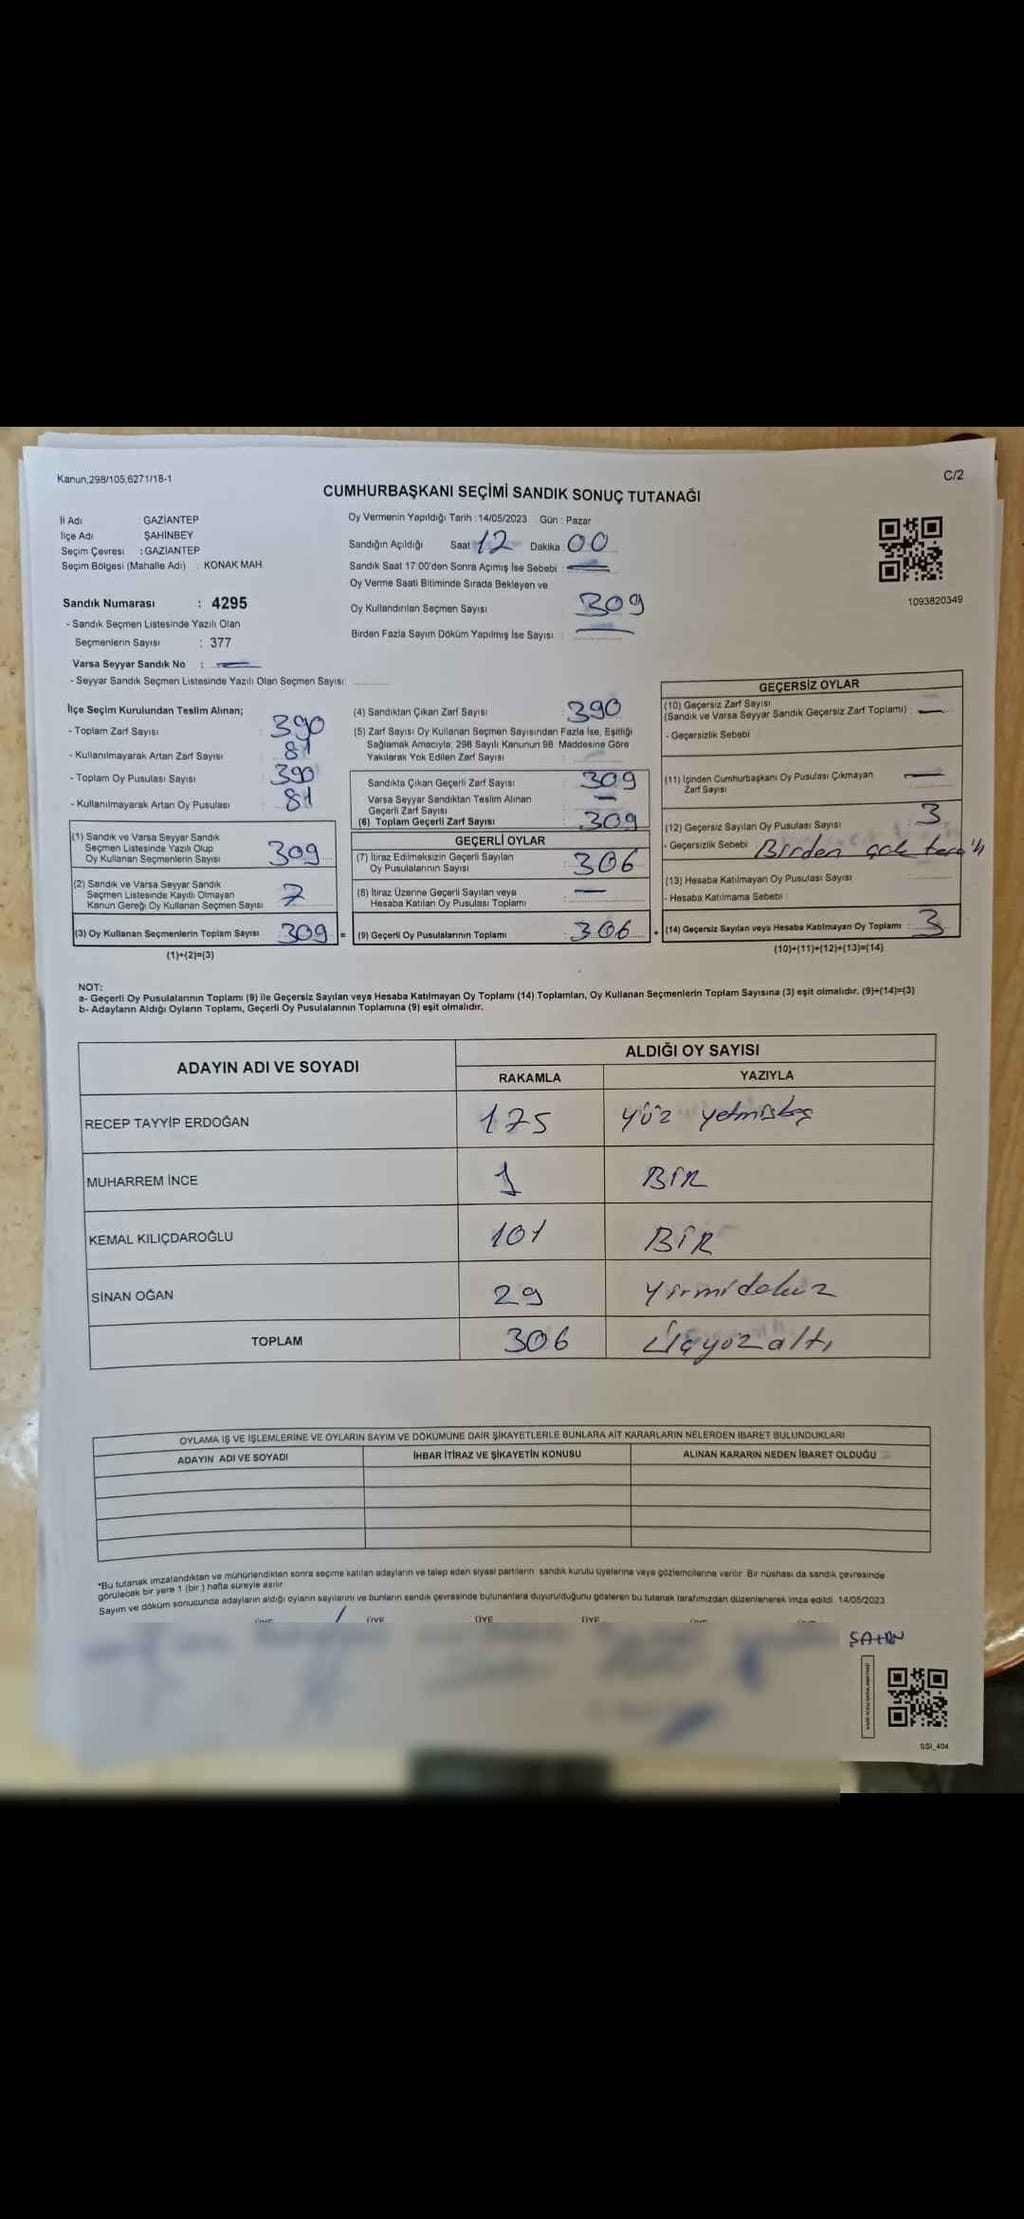 Kanun,298/105,6271/18-1
C/2
CUMHURBAŞKANI SEÇİMİ SANDIK SONUÇ TUTANAĞI
İl Adı GAZİANTEP
İlçe Adı ŞAHİNBEY
Seçim Çevresi : GAZİANTEP
Seçim Bölgesi (Mahalle Adı) : KONAK MAH.
Sandık Numarası : 4295
- Sandık Seçmen Listesinde Yazılı Olan
Seçmenlerin Sayısı : 377
Varsa Seyyar Sandık No :
- Seyyar Sandık Seçmen Listesinde Yazılı Olan Seçmen Sayısı:
Oy Vermenin Yapıldığı Tarih : 14/05/2023 Gün : Pazar
Sandığın Açıldığı Saat 12 Dakika : 00
Sandık Saat 17:00'den Sonra Açmış İse Sebebi :
Oy Verme Saati Bitiminde Sırada Bekleyen ve
Oy Kullandırılan Seçmen Sayısı 309
Birden Fazla Sayım Döküm Yapılmış İse Sayısı :
1093820349
İlçe Seçim Kurulundan Teslim Alınan;
- Toplam Zarf Sayısı 390
- Kullanılmayarak Artan Zarf Sayısı 81
- Toplam Oy Pusulası Sayısı 390
- Kullanılmayarak Artan Oy Pusulası 81
(1) Sandık ve Varsa Seyyar Sandık
Seçmen Listesinde Yazılı Olup
Oy Kullanan Seçmenlerin Sayısı 309
(2) Sandık ve Varsa Seyyar Sandık
Seçmen Listesinde Kayıtlı Olmayan
Kanun Gereği Oy Kullanan Seçmen Sayısı 7
(3) Oy Kullanan Seçmenlerin Toplam Sayısı 309 =
(1)+(2)=(3)
(4) Sandıktan Çıkan Zarf Sayısı : 390
(5) Zarf Sayısı Oy Kullanan Seçmen Sayısından Fazla İse, Eşitliği
Sağlamak Amacıyla; 298 Sayılı Kanunun 98. Maddesine Göre
Yakılarak Yok Edilen Zarf Sayısı :
Sandıkta Çıkan Geçerli Zarf Sayısı : 309
Varsa Seyyar Sandıktan Teslim Alınan
Geçerli Zarf Sayısı :
(6) Toplam Geçerli Zarf Sayısı : 309
GEÇERLİ OYLAR
(7) İtiraz Edilmeksizin Geçerli Sayılan
Oy Pusulalarının Sayısı : 306
(8) İtiraz Üzerine Geçerli Sayılan veya
Hesaba Katılan Oy Pusulası Toplamı :
(9) Geçerli Oy Pusulalarının Toplamı : 306 +
GEÇERSİZ OYLAR
(10) Geçersiz Zarf Sayısı
(Sandık ve Varsa Seyyar Sandık Geçersiz Zarf Toplamı) :
- Geçersizlik Sebebi
(11) İçinden Cumhurbaşkanı Oy Pusulası Çıkmayan
Zarf Sayısı
(12) Geçersiz Sayılan Oy Pusulası Sayısı : 3
- Geçersizlik Sebebi Birden çok
(13) Hesaba Katılmayan Oy Pusulası Sayısı :
- Hesaba Katılmama Sebebi
(14) Geçersiz Sayılan veya Hesaba Katılmayan Oy Toplamı : 3
(10)+(11)+(12)+(13)=(14)
NOT:
a- Geçerli Oy Pusulalarının Toplamı (9) ile Geçersiz Sayılan veya Hesaba Katılmayan Oy Toplamı (14) Toplamları, Oy Kullanan Seçmenlerin Toplam Sayısına (3) eşit olmalıdır. (9)+(14)=(3)
b- Adayların Aldığı Oyların Toplamı, Geçerli Oy Pusulalarının Toplamına (9) eşit olmalıdır.
ADAYIN ADI VE SOYADI ALDIĞI OY SAYISI
RAKAMLA YAZIYLA
RECEP TAYYİP ERDOĞAN 175 yüz yetmişbeş
MUHARREM İNCE 1 BİR
KEMAL KILIÇDAROĞLU 101 BİR
SİNAN OĞAN 29 Yirmidokuz
TOPLAM 306 Üçyüzaltı
OYLAMA İŞ VE İŞLEMLERİNE VE OYLARIN SAYIM VE DÖKÜMÜNE DAİR ŞİKAYETLERLE BUNLARA AİT KARARLARIN NELERDEN İBARET BULUNDUKLARI
ADAYIN ADI VE SOYADI İHBAR İTİRAZ VE ŞİKAYETİN KONUSU ALINAN KARARIN NEDEN İBARET OLDUĞU
*Bu tutanak imzalandıktan ve mühürlendikten sonra seçime katılan adayların ve talep eden siyasi partilerin sandık kurulu üyelerine veya gözlemcilerine verilir. Bir nüshası da sandık çevresinde
görülecek bir yere 1 (bir ) hafta süreyle asılır.
Sayım ve döküm sonucunda adayların aldığı oyların sayılarını ve bunların sandık çevresinde bulunanlara duyurulduğunu gösteren bu tutanak tarafımızdan düzenlenerek imza edildi. 14/05/2023
ÜYE ÜYE ÜYE
ŞAHİN
SSİ_404